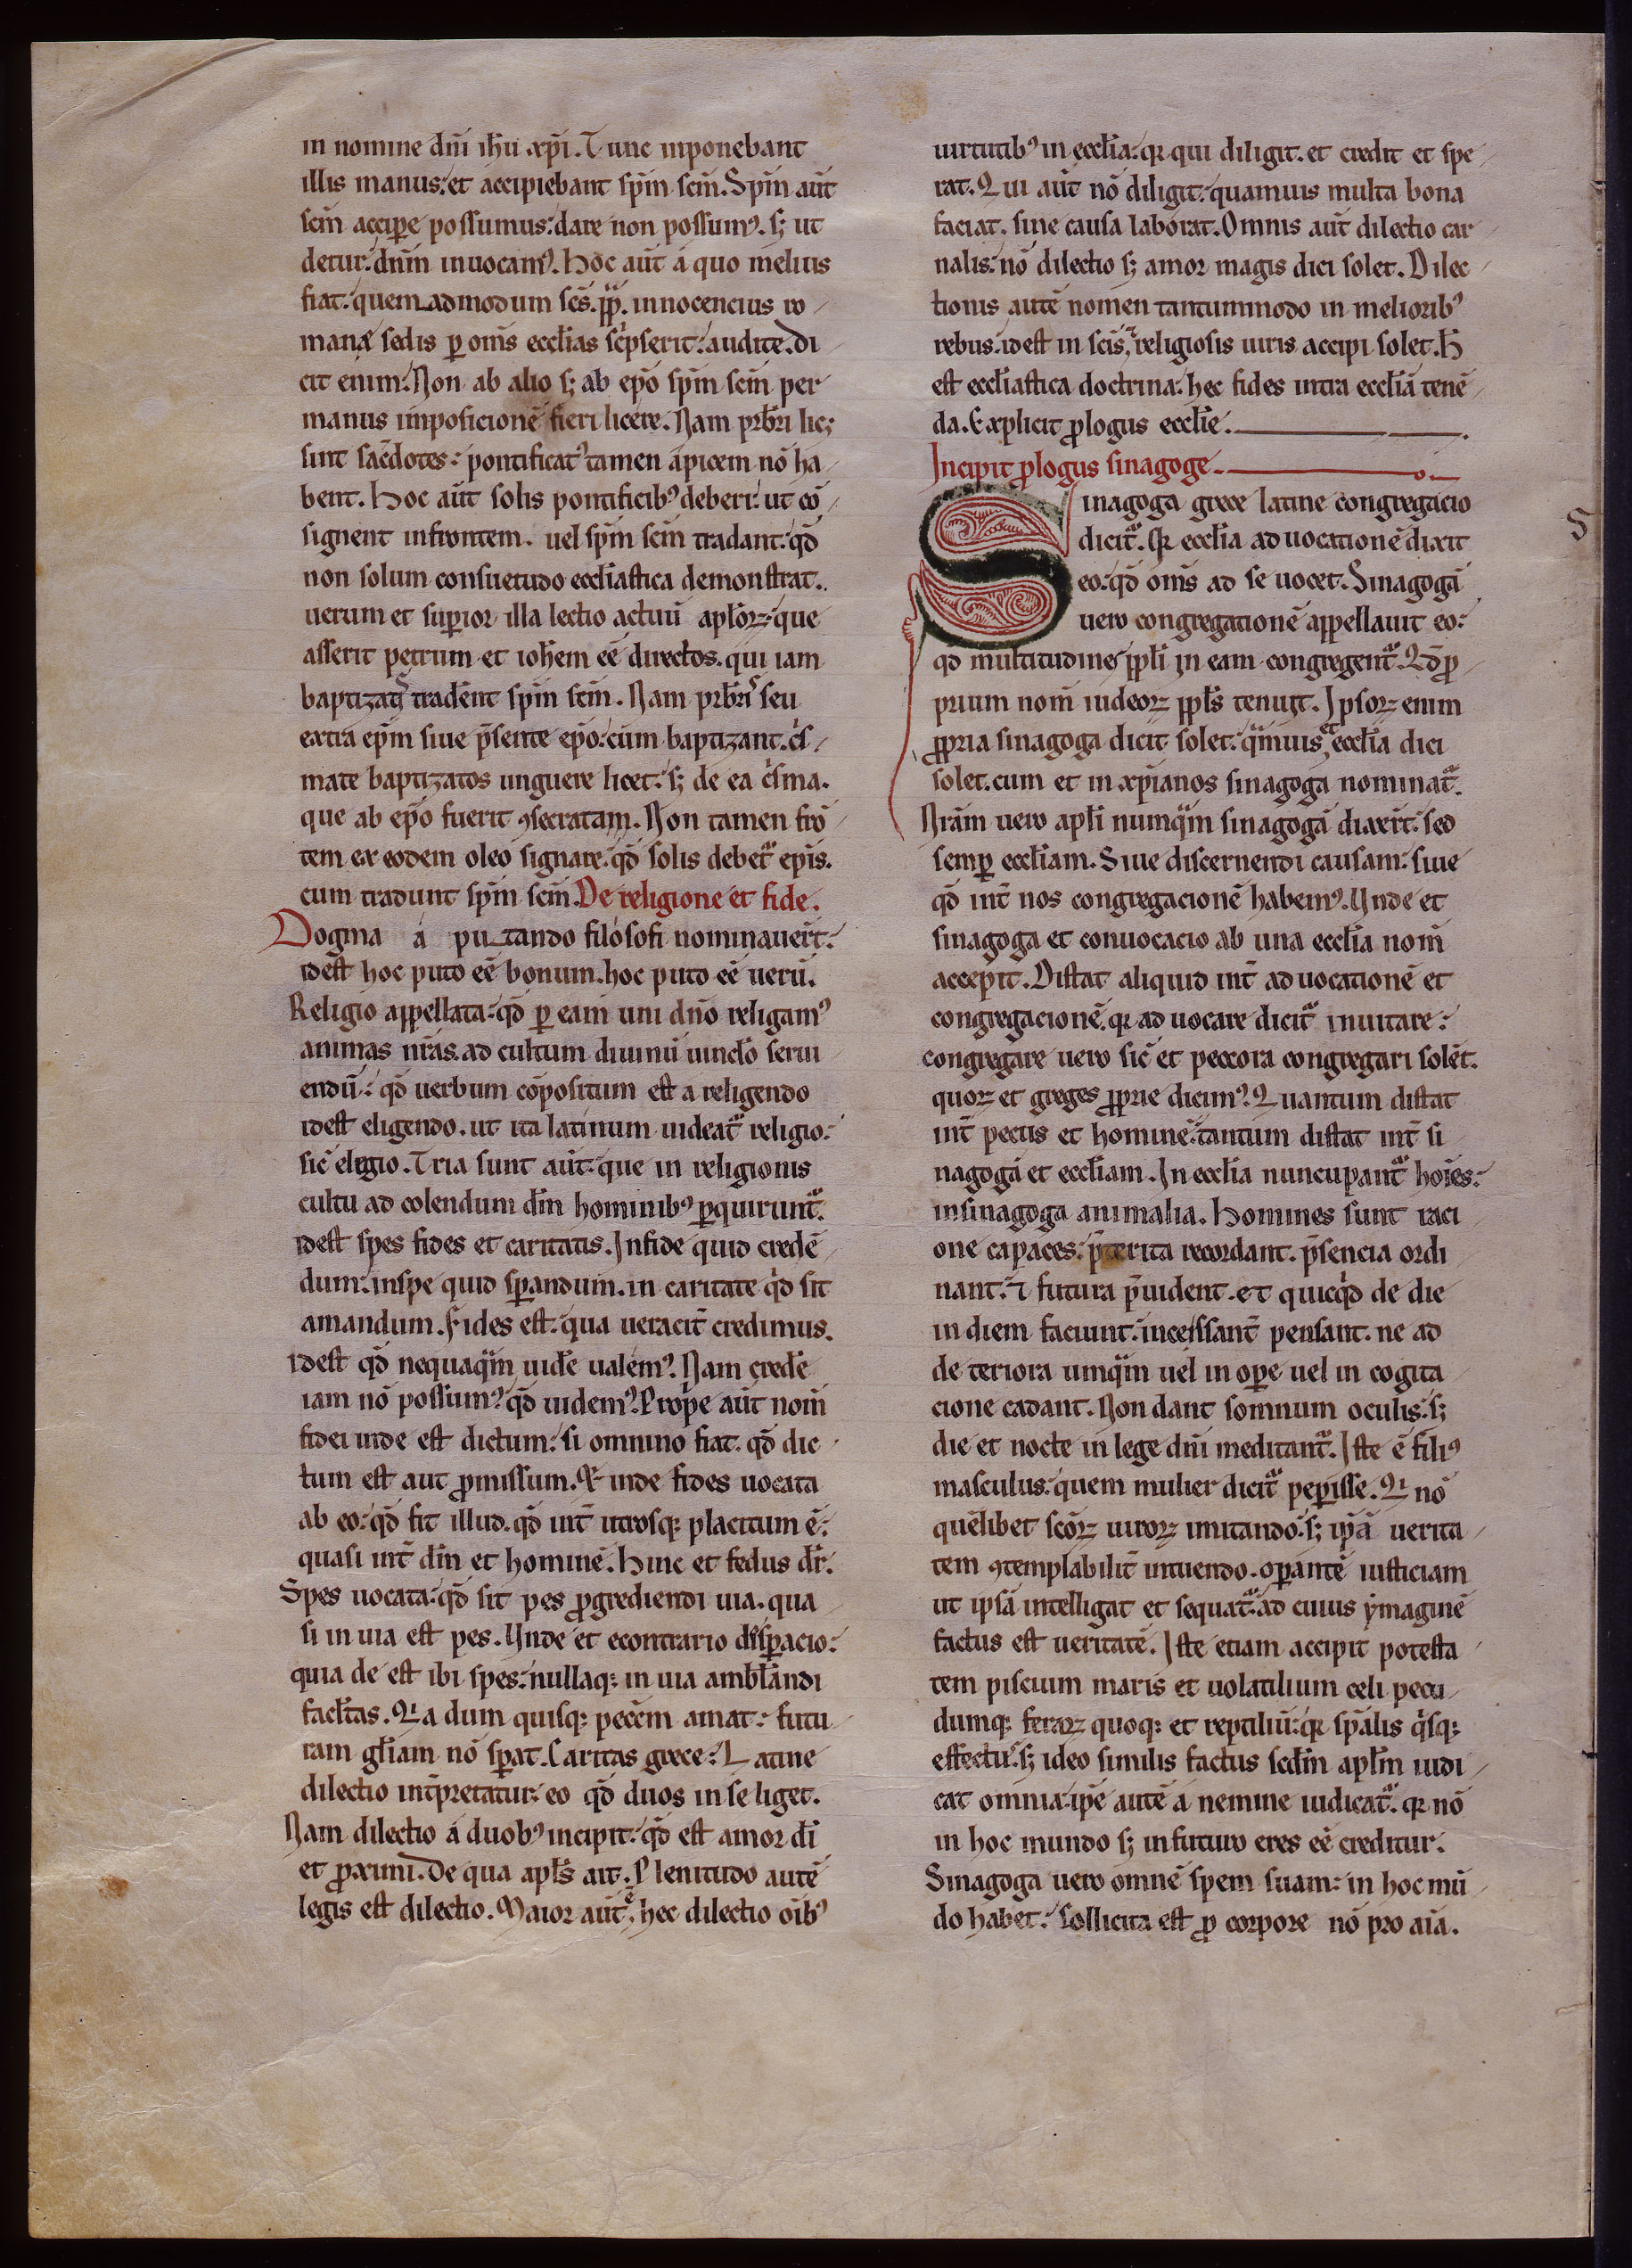 in nomine dñi ihũ xp̃i. Tunc inponebant
illis manus: et accipiebant sp̃m sc̃m. Sp̃m aũt
sc̃m accipe possumus: dare non possumꝰ. sꝫ ut
detur: dñm inuocamꝰ. Hoc aũt a quo melius
fiat: quem admodum sc̃s. pp̃. innocencius ro
manę sedis ꝑ om̃s eccl̃ias sc̃pserit: audite. di
cit enim: Non ab alio sꝫ ab ep̃o sp̃m sc̃m per
manus imposicionẽ fieri licere. Nam prb̃ri licꝫ
sint sac̃dotes: pontificatꝰ tamen apicem nõ ha
bent. Hoc aũt solis pontificibꝰ deberi: ut cõ
signent infrontem. uel sp̃m sc̃m tradant: qđ
non solum consuetudo eccl̃iastica demonstrat.
uerum et supior illa lectio actuũ apl̃oꝝ: que
asserit petrum et ioh̃em eẽ directos. qui iam
baptizatis tradent sp̃m sc̃m. Nam prb̃ri seu
extra ep̃m siue p̃sente ep̃o: cum baptizant. c̃s
mate baptizatos unguere licet: sꝫ de ea c̃sma.
que ab ep̃o fuerit ꝯsecratam. Non tamen frõ
tem ex eodem oleo signare: qđ solis debet᷑ ep̃is.
cum tradunt sp̃m sc̃m. De religione et fide.
Dogma a putando filosofi nominauer̃t:
idest hoc puto eẽ bonum. hoc puto eẽ uerũ.
Religio appellata: qđ ꝑ eam uni dño religamꝰ
animas nr̃as. ad cultum diuinũ uincl̃o serui
endũ: qđ uerbum cõpositum est a religendo
idest eligendo. ut ita latinum uideat᷑ religio:
sic̃ elegio. Tria sunt aũt: que in religionis
cultu ad colendum dm̃ hominibꝰ ꝑquirunt᷑.
idest spes fides et caritatis. Infide quid credẽ
dum: inspe quid sꝑandum. in caritate qđ sit
amandum. Fides est: qua ueracit̃ credimus.
idest qđ nequaq̃m uidẽ ualemꝰ. Nam credẽ
iam nõ possumꝰ: qđ uidemꝰ. Prope aũt nom̃
fidei inde est dictum: si omnino fiat. qđ dic
tum est aut ꝓmissum. Et inde fides uocata
ab eo: qđ fit illud. qđ int̃ utrosqꝫ placitum ẽ:
quasi int̃ dm̃ et hominẽ. Hinc et fedus dr̃.
Spes uocata: qđ sit pes ꝓgrediendi uia. qua
si in uia est pes. Unde et econtrario disꝑacio:
quia de est ibi spes: nullaqꝫ in uia ambl̃andi
facl̃tas. Quia dum quisqꝫ pecc̃m amat: futu
ram gl̃iam nõ sꝑat. Caritas grece: Latine
dilectio int̃pretatur: eo qđ duos in se liget.
Nam dilectio a duobꝰ incipit: qđ est amor dĩ
et ꝓximi. De qua apl̃s ait. Plenitudo autẽ
legis est dilectio. Maior aũt ẽ hec dilectio oĩbꝰ
uirtutibꝰ in eccl̃ia: qꝛ qui diligit. et credit et spe
rat. Qui aũt nõ diligit: quamuis multa bona
faciat. sine causa laborat. Omnis aũt dilectio car
nalis: nõ dilectio sꝫ amor magis dici solet. Dilec
tionis autẽ nomen tantummodo in melioribꝰ
rebus: idest in sc̃is, religiosis uiris accipi solet. H̃
est eccl̃iastica doctrina: hec fides intra eccl̃iã tenẽ
da. Explicit ꝓlogus eccl̃ie.
Incipit ꝓlogus sinagoge.
Sinagoga grece latine congregacio
dicit᷑. Qꝛ eccl̃ia ad uocationẽ dixit
eo: qđ om̃s ad se uocet. Sinagogã
uero congregationẽ appellauit eo:
qđ multitudines ppl̃i in eam congregent᷑. Qđ ꝓ
prium nom̃ iudeoꝝ ppl̃s tenuit. Ipsoꝝ enim
ꝓpria sinagoga dicit solet: q̃muis et eccl̃ia dici
solet. cum et in xp̃ianos sinagoga nominat᷑.
Nr̃am uero apl̃i numq̃m sinagogã dixer̃t: sed
semꝑ eccl̃iam. Siue discernendi causam: siue
qđ int̃ nos congregacionẽ habemꝰ. Unde et
sinagoga et conuocacio ab una eccl̃ia nom̃
accepit. Distat aliquid int̃ ad uocationẽ et
congregacionẽ. qꝛ ad uocare dicit᷑ inuitare:
congregare uero sic̃ et peccora congregari solẽt.
quoꝝ et greges ꝓprie dicimꝰ. Quantum distat
int̃ pecus et hominẽ: tantum distat int̃ si
nagogã et eccl̃iam. In eccl̃ia nuncupant᷑ hoĩes:
insinagoga animalia. Homines sunt raci
one capaces: p̃terita recordant. p̃sencia ordi
nant: ⁊ futura p̃uident. et quicqđ de die
in diem faciunt: incessant̃ pensant. ne ad
de teriora umq̃m uel in oꝑe uel in cogita
cione cadant. Non dant somnum oculis: sꝫ
die et nocte in lege dñi meditant᷑. Iste ẽ filiꝰ
masculus: quem mulier dicit᷑ peꝑisse. Qui nõ
quẽlibet sc̃oꝝ uiroꝝ imitando: sꝫ ip̃ã uerita
tem ꝯtemplabilit̃ intuendo. oꝑantẽ iusticiam
ut ipsã intelligat et sequat᷑: ad cuius ymaginẽ
factus est ueritatẽ. Iste etiam accipit potesta
tem piscium maris et uolatilium celi pecu
dumqꝫ feraꝝ quoqꝫ et reptiliũ: qꝛ sp̃alis q̃sqꝫ
effectus: sꝫ ideo similis factus scđm apl̃m iudi
cat omnia: ip̃e autẽ a nemine iudicat᷑. qꝛ nõ
in hoc mundo sꝫ infuturo eres eẽ creditur.
Sinagoga uero omnẽ spem suam: in hoc mũ
do habet: sollicita est ꝓ corpore nõ pro aĩa.
S